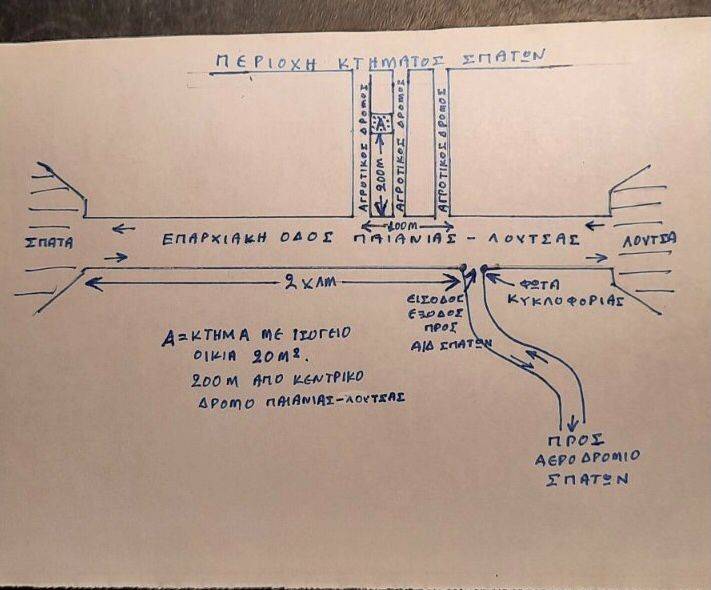 ΠΕΡΙΟΧΗ ΚΤΗΜΑΤΟΣ ΣΠΑΤΩΝ
ΑΓΡΟΤΙΚΟΣ ΔΡΟΜΟΣ
Α
200Μ
ΑΓΡΟΤΙΚΟΣ ΔΡΟΜΟΣ
ΑΓΡΟΤΙΚΟΣ ΔΡΟΜΟΣ
100m
ΣΠΑΤΑ
ΕΠΑΡΧΙΑΚΗ ΟΔΟΣ ΠΑΙΑΝΙΑΣ - ΛΟΥΤΣΑΣ
ΛΟΥΤΣΑ
2 ΧΛΜ
ΕΙΣΟΔΟΣ
ΕΞΟΔΟΣ
ΠΡΟΣ
Α/Δ ΣΠΑΤΩΝ
ΦΩΤΑ
ΚΥΚΛΟΦΟΡΙΑΣ
Α=ΚΤΗΜΑ ΜΕ ΙΣΟΓΕΙΟ
ΟΙΚΙΑ 20Μ².
200Μ ΑΠΟ ΚΕΝΤΡΙΚΟ
ΔΡΟΜΟ ΠΑΙΑΝΙΑΣ-ΛΟΥΤΣΑΣ
ΠΡΟΣ
ΑΕΡΟΔΡΟΜΙΟ
ΣΠΑΤΩΝ